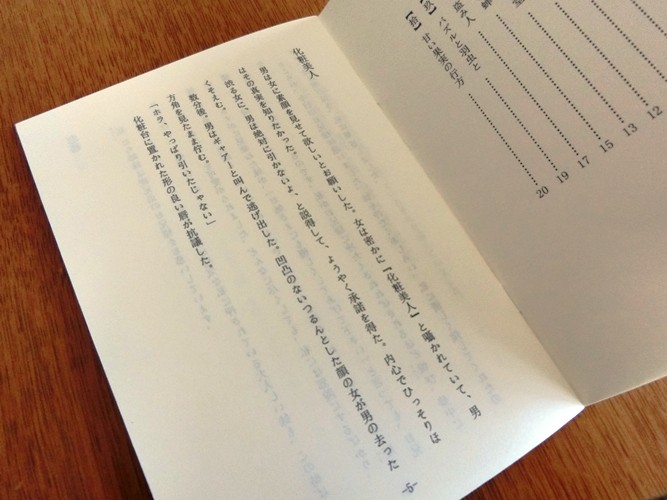 12
13
15
盗み人 17
【玖】 パズルと羽虫と 19
【拾】 甘い果実の行方 20
化粧美人
男は女に素顔を見せて欲しいとお願いした。女は密かに『化粧美人』と囁かれていて、男
はその真実を知りたかった。
渋る女に、男は絶対に引かないよ、と説得して、ようやく承諾を得た。内心でひっそりほ
くそえむ。
数分後、男はギャアーと叫んで逃げ出した。凹凸のないつるんとした顔の女が男の去った
方角を見たまま佇む。
「ホラ、やっぱり引いたじゃない」
化粧台に置かれた形の良い唇が抗議した。
-5-